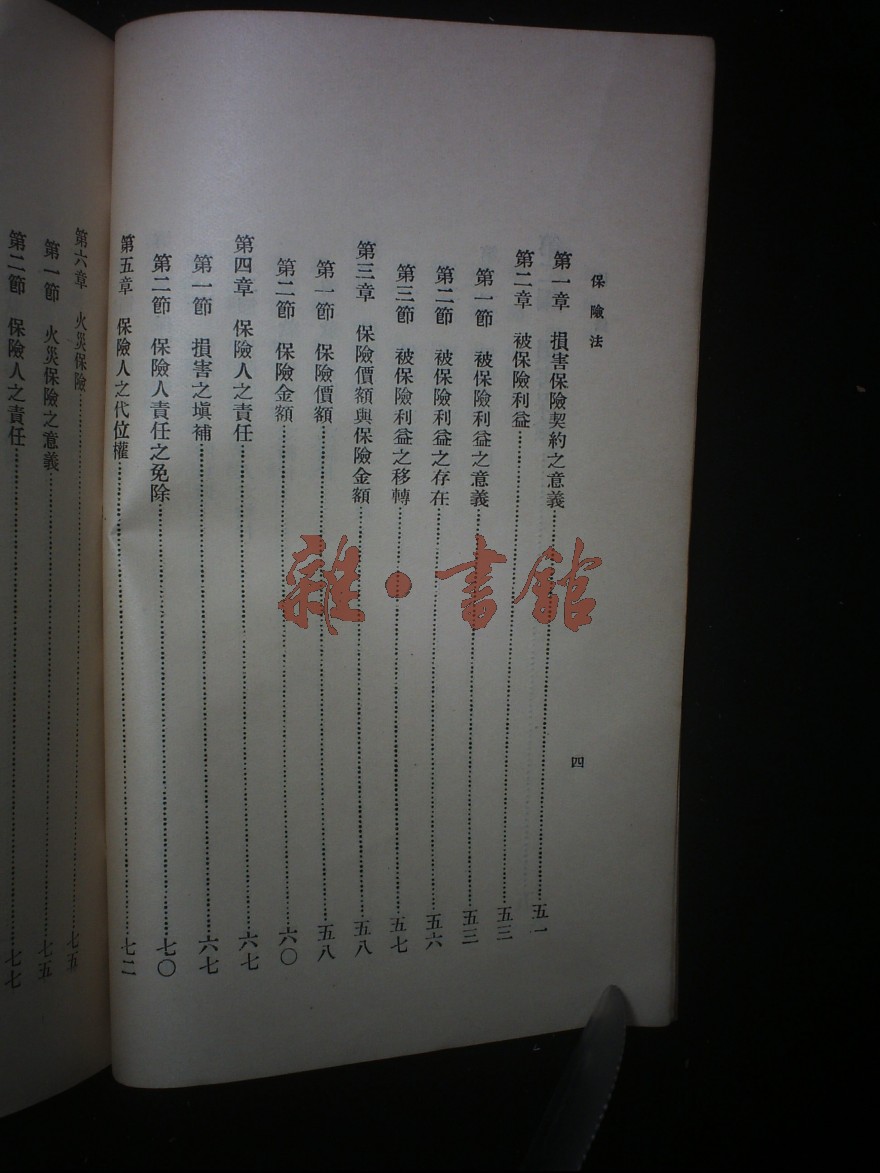 保險法
四
第一章　損害保險契約之意義……五一
第二章　被保險利益……五三
第一節　被保險利益之意義……五三
第二節　被保險利益之存在……五六
第三節　被保險利益之移轉……五七
第三章　保險價額與保險金額……五八
第一節　保險價額……五八
第二節　保險金額……六〇
第四章　保險人之責任……六七
第一節　損害之塡補……六七
第二節　保險人責任之免除……七〇
第五章　保險人之代位權……七二
第六章　火災保險……七五
第一節　火災保險之意義……七五
第二節　保險人之責任……七七
雜·書館